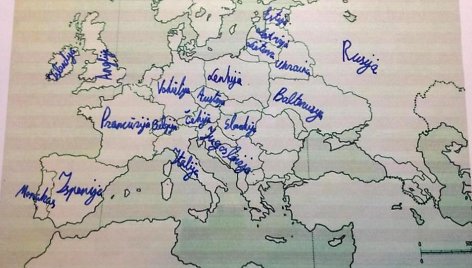 Estija
Latvija
Lietuva
Ukraina
Rusija
Islandija
Anglija
Lenkija
Vokietija
Baltarusija
Prancūzija
Belgija
Čekija
Slovakija
Jugoslavija
Italija
Monakas
Ispanija